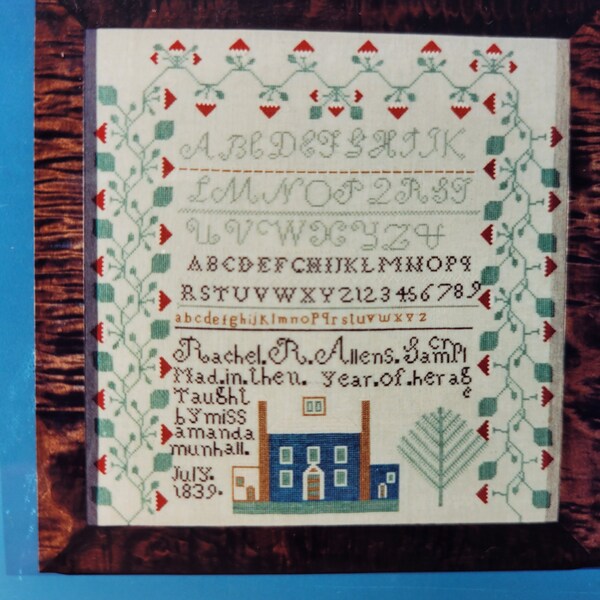 A B C D E F G H I J K
L M N O P Q R S T
U V W X Y Z &
A B C D E F G H I J K L M N O P q
R S T U V W X Y Z 1 2 3 4 5 6 7 8 9
a b c d e f g h i j k l m n o p q r s t u v w x y z
Rachel. R. Allens. Sampl er
Mad. in. then. year. of. her ag e
Taught
by miss
amanda
munhall.
July.
1839.